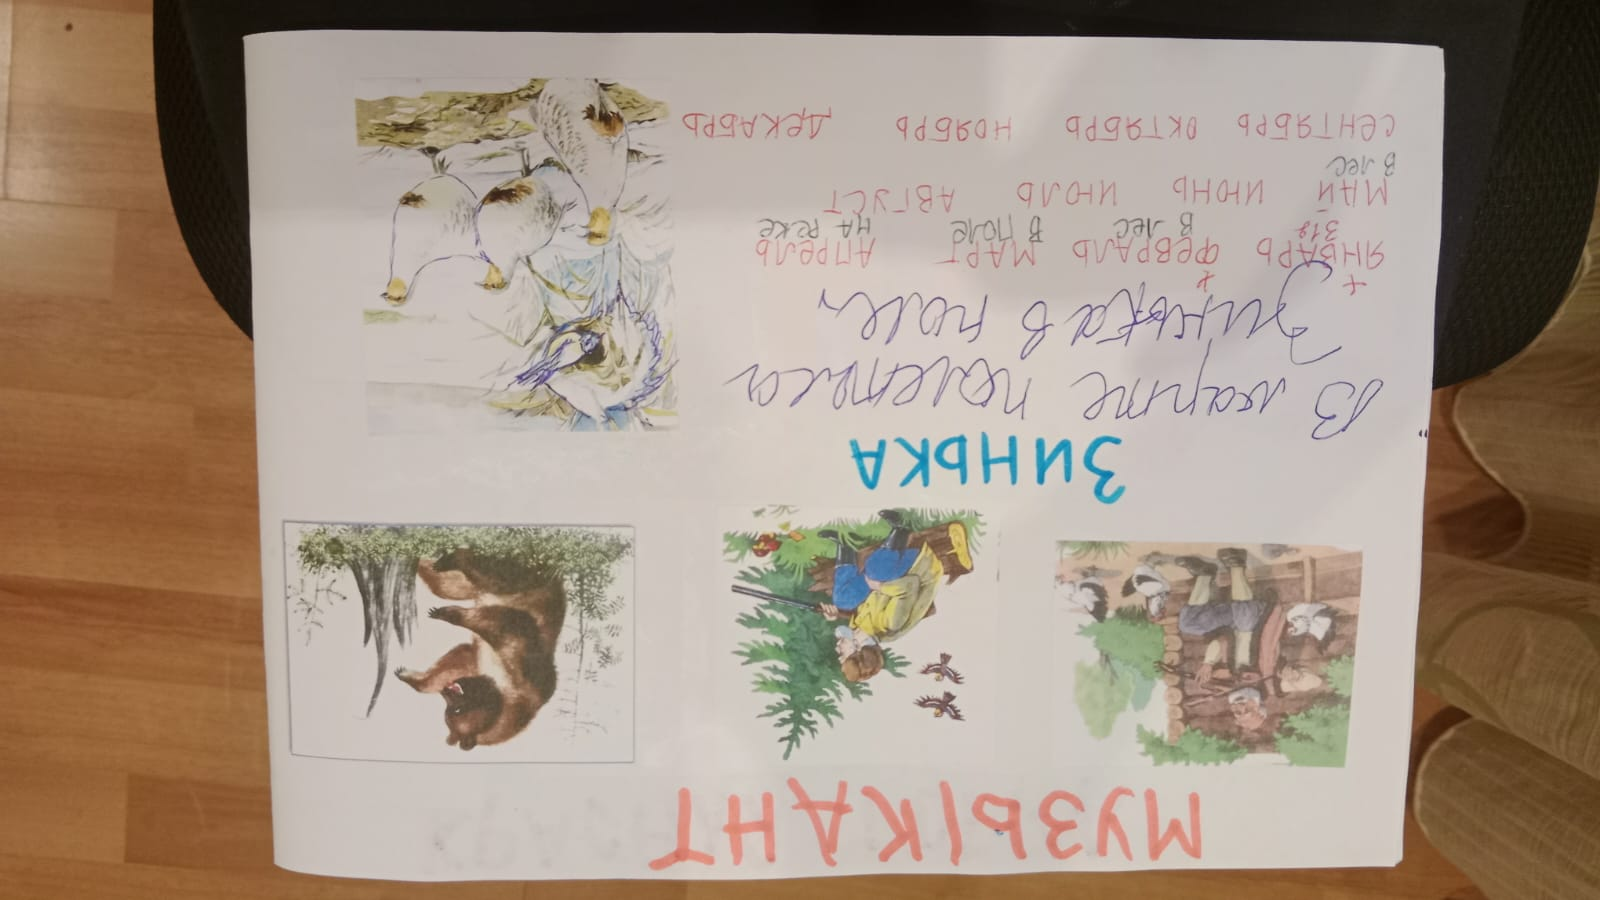 МУЗЫКАНТ
ЗИНЬКА
В марте полетела
Зинька в поле.
ЯНВАРЬ ФЕВРАЛЬ МАРТ АПРЕЛЬ
В ЛЕС В ПОЛЕ НА РЕКЕ
МАЙ ИЮНЬ ИЮЛЬ АВГУСТ
В ЛЕС
СЕНТЯБРЬ ОКТЯБРЬ НОЯБРЬ ДЕКАБРЬ